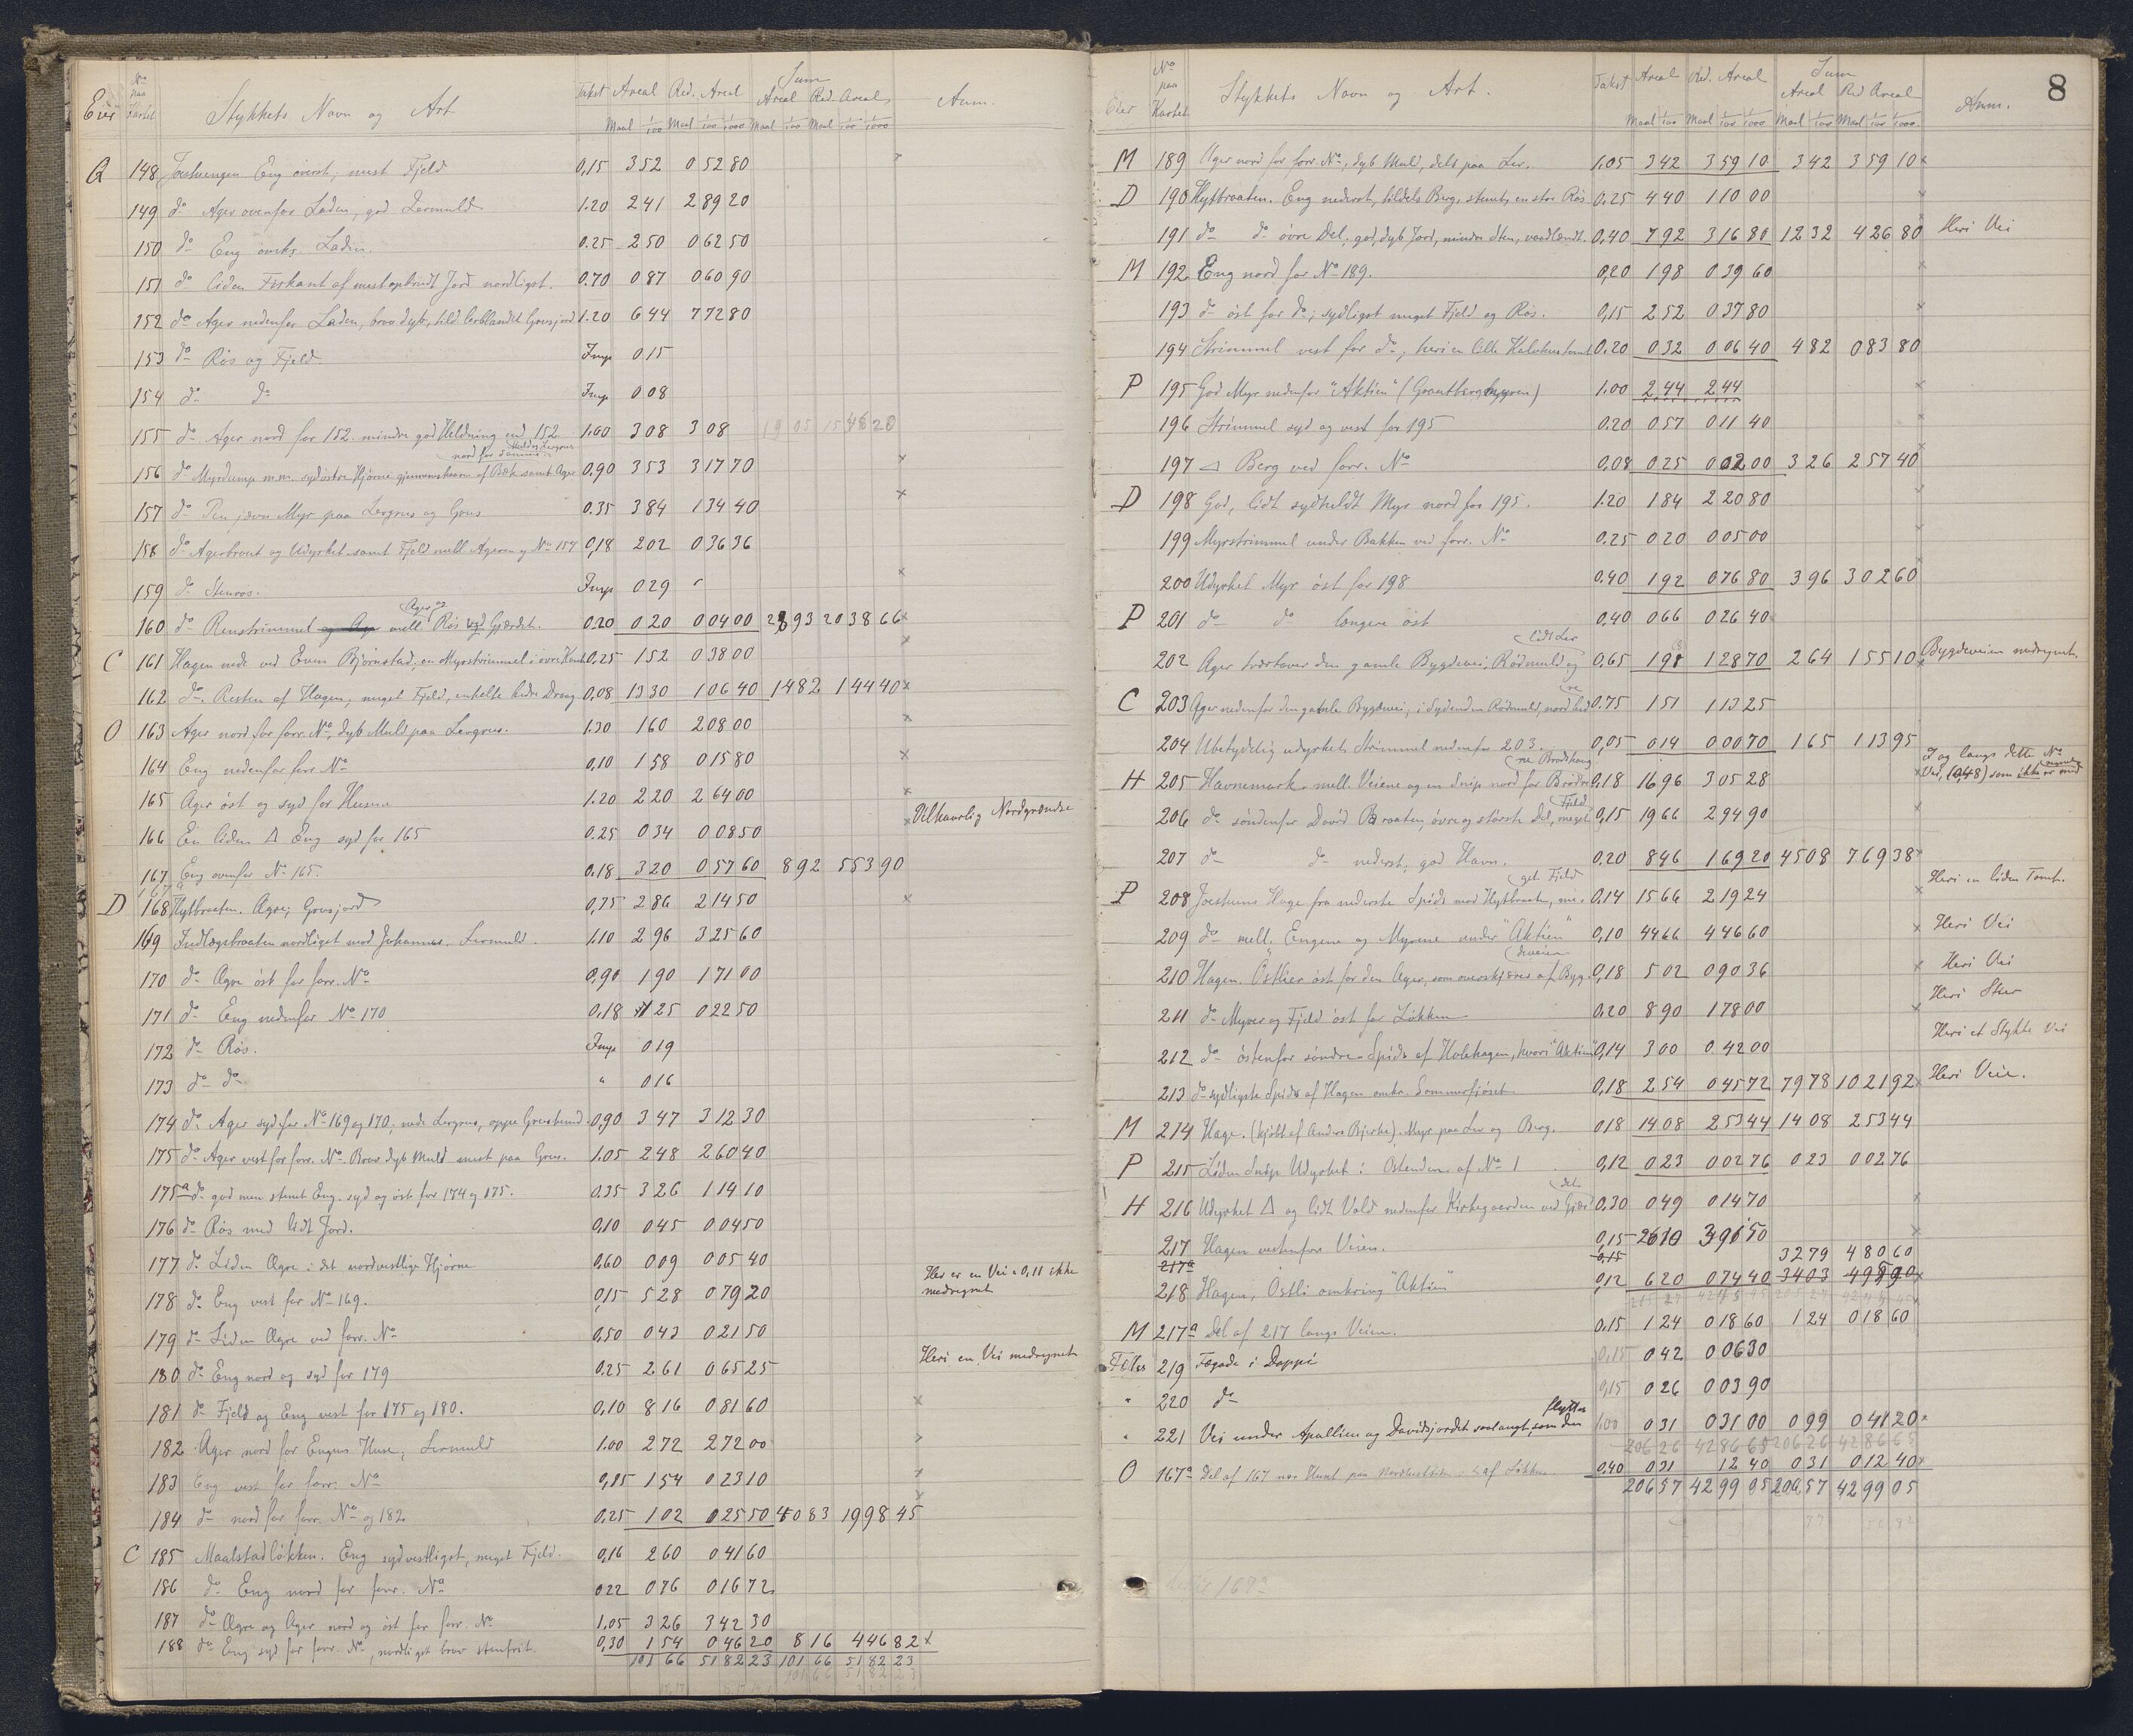 Eier No paa Kartet Stykkets Navn og Art Takst Areal Red. Areal Sum Areal Red. Areal Anm.
Maal 1/100 Maal 1/100 1/1000 Maal 1/100 Maal 1/100 1/1000
Q 148 Eng øverst, mest Fjeld 0,15 3 52 0 52 80
149 do Ager ovenfor Laden, god Lermuld 1.20 2 41 2 89 20
150 do Eng omkr. Laden. 0.25 2 50 0 62 50
151 do liden Firkant af mest opbrudt Jord nordligst. 0.70 0 87 0 60 90
152 do Ager nedenfor Laden, brav dyb, tild lerblandet Grusjord 1.20 6 44 7 72 80
153 do Røs og Fjeld Imp 0 15
154 do do Imp 0 08
155 do Ager nord for 152 mindre god Heldning end 152 1.00 3 08 3 08 19 05 15 46 20
nord for samme
156 do Myrdump m.m. sydøstre Hjørne gjennemskaaren af Bæk samt Ager 0.90 3 53 3 17 70
157 do Pen, jævn Myr paa Lergrus og Grus 0.35 3 84 1 34 40
158 do Agerbraut og Udyrket samt Fjeld mell Ageren og No 157 0,18 2 02 0 36 36
159 do Stenrøs. Imp 0 29
160 do Renstrimmel og Ager mell Ager og Røs ved Gjærdet. 0.20 0 20 0 04 00 28 93 20 38 66 x
C 161 Hagen nede ved Even Bjørnstad, en Myrstrimmel i øvre Kant 0.25 1 52 0 38 00
162 do. Resten af Hagen, meget Fjeld, enkelte bedre Drag 0,08 13 30 1 06 40 14 82 1 44 40 x
O 163 Ager nord for forr. No, dyb Muld paa Lergrus. 1.30 1 60 2 08 00 x
164 Eng nedenfor forr No 0,10 1 58 0 15 80 x
165 Ager øst og syd for Husene 1.20 2 20 2 64 00 x
166 En liden Δ Eng syd for 165 0.25 0 34 0 08 50 x Vilkaarlig Nordgrændse
167 Eng ovenfor No 165. 0.18 3 20 0 57 60 8 92 5 53 90
167a
D 168 Hytbraaten. Agre; Grusjord 0,75 2 86 2 14 50 x
169 Indlægsbraaten nordligst mod Johannes. Lermuld. 1.10 2 96 3 25 60
170 do Agre øst for forr. No 0.90 1 90 1 71 00
171 do Eng nedenfor No 170 0,18 1 25 0 22 50
172 do Røs. Imp 0 19
173 do do " 0 16
174 do Ager syd for No 169 og 170; nede Lergrus, oppe Grusbund. 0,90 3 47 3 12 30
175 do Ager vest for forr. No. Brav dyb Muld mest paa Grus. 1.05 2 48 2 60 40
175a do god men stenet Eng. syd og øst for 174 og 175. 0.35 3 26 1 14 10
176 do Røs med lidt Jord. 0,10 0 45 0 04 50
177 do Liden Agre i det nordvestlige Hjørne 0,60 0 09 0 05 40
178 do Eng vest for No 169. 0,15 5 28 0 79 20 Her er en Vei = 0,11 ikke medregnet
179 do Liden Agre ved forr. No 0,50 0 43 0 21 50
180 do Eng nord og syd for 179 0.25 2 61 0 65 25 Heri en Vei medregnet
181 do Fjeld og Eng vest for 175 og 180. 0,10 8 16 0 81 60 x
182 Ager nord for Engens Huse; Lermuld 1.00 2 72 2 72 00
183 Eng vest for forr. No 0,15 1 54 0 23 10 x
184 do nord for forr. No og 182. 0.25 1 02 0 25 50 40 83 19 98 45 x
C 185 Maalstadløkken. Eng sydvestligst, meget Fjeld. 0,16 2 60 0 41 60
186 do Eng nord for forr. No 0 22 0 76 0 16 72
187 do Agre og Ager nord og øst for forr. No 1.05 3 26 3 42 30
188 do Eng syd for forr. No, nordligst brav stenfrit. 0,30 1 54 0 46 20 8 16 4 46 82 x
101 66 51 82 23 101 66 51 82 23
8
Eier No paa Kartet Stykkets Navn og Art. Takst Areal Red. Areal Sum Areal Red Areal Anm.
Maal 1/100 Maal 1/100 1/1000 Maal 1/100 Maal 1/100 1/1000
M 189 Ager nord for forr. No, dyb Muld, dels paa Ler. 1.05 3 42 3 59 10 3 42 3 59 10 x
D 190 Hytbraaten. Eng nederst, tildels Berg, stenet, en stor Røs 0.25 4 40 1 10 00 x
191 do do øvre Del. god, dyb Jord, mindre sten, vaadlændt. 0,40 7 92 3 16 80 12 32 4 26 80 Heri Vei
M 192 Eng nord for No 189. 0,20 1 98 0 39 60 x
193 do øst for do; sydligst meget Fjeld og Røs. 0,15 2 52 0 37 80 x
194 Strimmel vest for do, heri en lille Kalvhustomt 0.20 0 32 0 06 40 4 82 0 83 80
P 195 God Myr nedenfor "Aktien" (Grautbergmyren) 1.00 2 44 2 44 x
196 Strimmel syd og vest for 195 0.20 0 57 0 11 40 x
197 Δ Berg ved forr. No 0,08 0 25 0 02 00 3 26 2 57 40 x
D 198 God, lidt sydheldt Myr nord for 195. 1.20 1 84 2 20 80
199 Myrstrimmel under Bakken ved forr. No 0.25 0 20 0 05 00 x
200 Udyrket Myr øst for 198 0.40 1 92 0 76 80 3 96 3 02 60 x
P 201 do do længere øst 0,40 0 66 0 26 40
lidt Ler
202 Ager tvertover den gamle Bygdevei, Rødmuld og 0,65 1 98 1 28 70 2 64 1 55 10 x Bygdeveien medregnet.
C 203 Ager nedenfor den gamle Bygdevei, i Sydenden Rødmuld, nord bedre 0.75 1 51 1 13 25
204 Ubetydelig udyrket Strimmel nedenfor 203. 0,05 0 14 0 00 70 1 65 1 13 95
H 205 Havnemark mell. Veiene og en Snip nord for 0,18 16 96 3 05 28 x I og langs dette No Vei, (0,48) som ikke er med
206 do søndenfor David Braaten, øvre og største Del, meget Fjeld 0,15 19 66 2 94 90 x
207 do do nederst, god Havn. 0,20 8 46 1 69 20 45 08 7 69 38 x
P 208 Hage fra nederste Spids mod Hytbraaten, meget Fjeld 0.14 15 66 2 19 24 x Heri en liden Tomt.
209 do mell. Engene og Myrene under "Aktien" 0,10 44 66 4 46 60 x Heri Vei
210 Hagen. Østlier øst for den Ager, som overskjæres af Bygdeveien 0,18 5 02 0 90 36 x Heri Vei
211 do Myrer og Fjeld øst for Løkken 0.20 8 90 1 78 00 x Heri
212 do østenfor søndre Spids af Holehagen, hvori "Aktien" 0,14 3 00 0 42 00 Heri et Stykke Vei
213 do sydligste Spids af Hagen omkr. Sommerfjøset 0,18 2 54 0 45 72 79 78 10 21 92 x Heri Veie.
M 214 Hage. (kjøbt af Anders Bjerke). Myr paa Ler og Berg. 0 18 14 08 2 53 44 14 08 2 53 44
P 215 Liden Snip Udyrket i Østenden af No 1 0,12 0 23 0 02 76 0 23 0 02 76
H 216 Udyrket Δ og lidt Vold nedenfor Kirkegaarden ved Gjærdet 0,30 0 49 0 14 70 x
217 Hagen vestenfor Veien. 0,15 26 10 3 91 50 x
217a 0,15 32 79 4 80 60
218 Hagen, Østli omkring "Aktien" 0,12 6 20 0 74 40 34 03 4 98 90 x
M 217a Del af 217 langs Veien. 0,15 1 24 0 18 60 1 24 0 18 60
Fælles 219 Fægade i Dappi 0,15 0 42 0 06 30
" 220 do 0,15 0 26 0 03 90
" 221 Vei under Apallien og Davidsjordet saalangt, som den flyttes 1.00 0 31 0 31 00 0 99 0 41 20 x
206 26 42 86 65 206 26 42 86 65
O 167a Del af 167 af Løkken 0,40 0 31 12 40 0 31 0 12 40 x
206 57 42 99 05 206 57 42 99 05